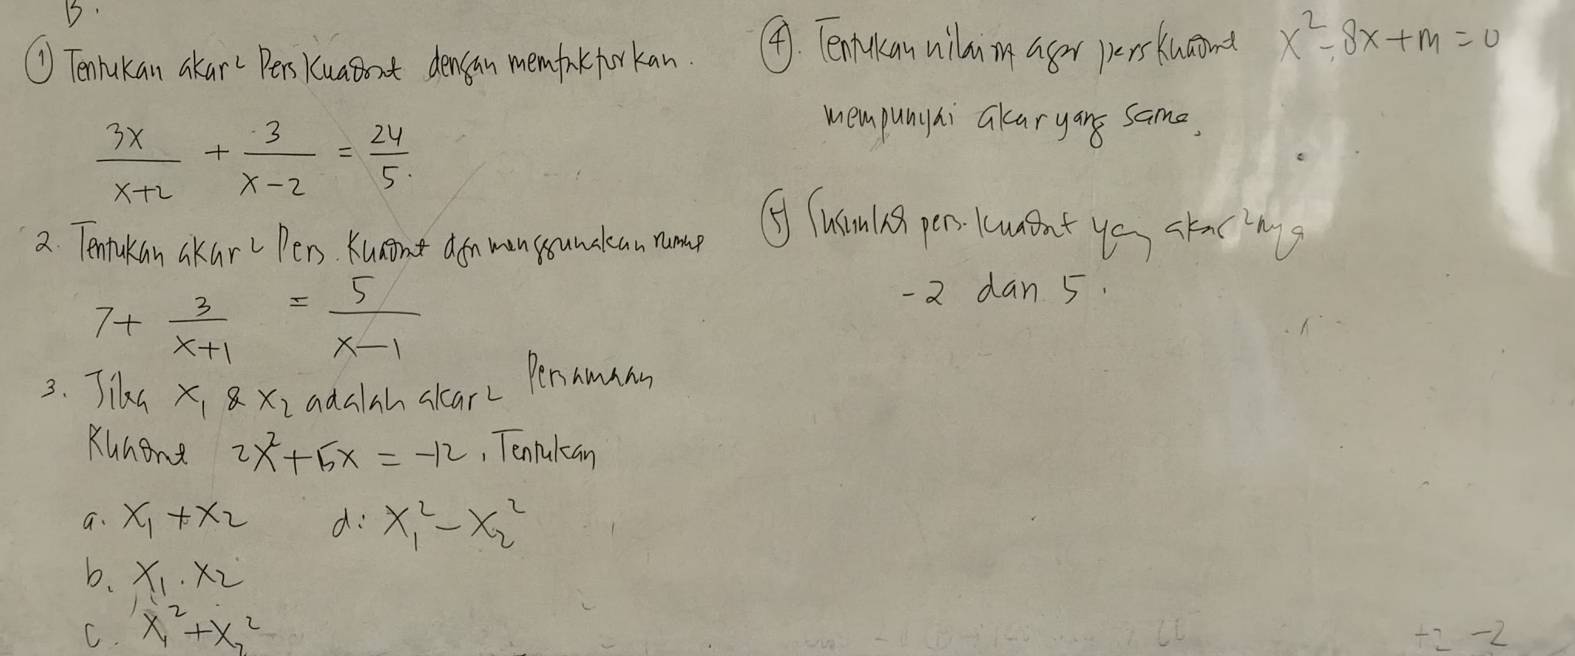 B.
① Tentukan akar² Pers Kuadrat dengan memfaktorkan.
3x/(x+2) + 3/(x-2) = 24/5.
2. Tentukan akar² Pers. Kuadrat dgn menggunakan rumus
7 + 3/(x+1) = 5/(x-1)
3. Jika x₁ & x₂ adalah akar² Persamaan
Kuadrat 2x² + 5x = -12, Tentukan
a. x₁ + x₂ d: x₁² - x₂²
b. x₁ . x₂
c. x₁² + x₂²
④. Tentukan nilai m agar pers kuadrat x² - 8x + m = 0
mempunyai akar yang sama.
⑤ Susunlah pers. kuadrat yang akar²nya
-2 dan 5.
+2 -2